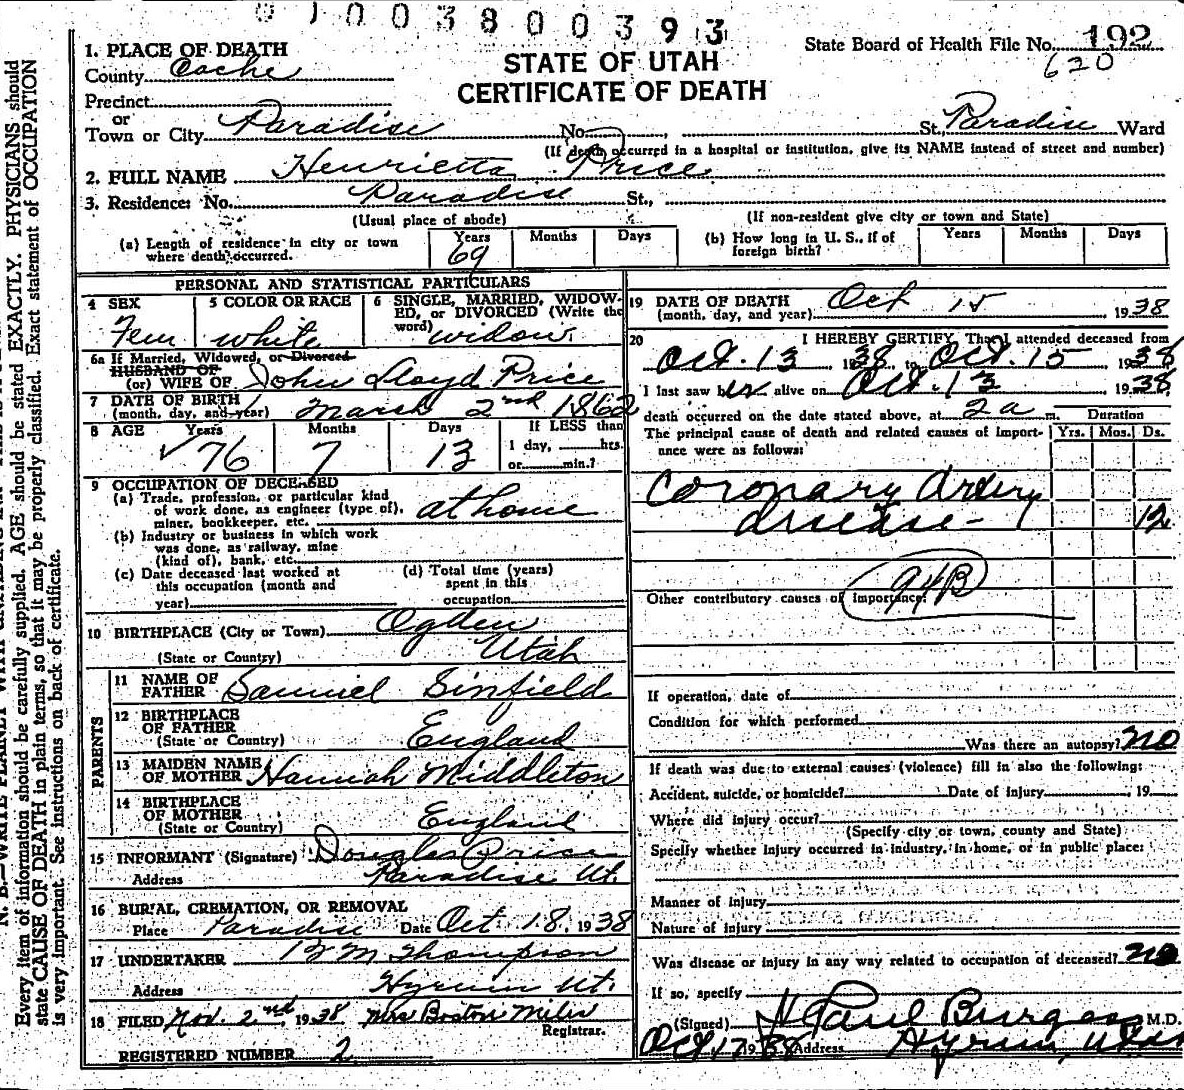 0 1 0 0 3 8 0 0 3 9 3
STATE OF UTAH
CERTIFICATE OF DEATH
State Board of Health File No. 192
620
1. PLACE OF DEATH
County Cache
Precinct
or
Town or City Paradise No. , St., Paradise Ward
(If death occurred in a hospital or institution, give its NAME instead of street and number)
2. FULL NAME Henrietta Price
3. Residence: No. Paradise St.,
(Usual place of abode) (If non-resident give city or town and State)
(a) Length of residence in city or town where death occurred. Years 69 Months Days
(b) How long in U. S., if of foreign birth? Years Months Days
PERSONAL AND STATISTICAL PARTICULARS
4 SEX Fem
5 COLOR OR RACE white
6 SINGLE, MARRIED, WIDOW-
ED, or DIVORCED (Write the
word) widow
6a If Married, Widowed, or Divorced
HUSBAND OF
(or) WIFE OF John Lloyd Price
7 DATE OF BIRTH
(month, day, and year) March 2nd 1862
8 AGE Years Months Days If LESS than
76 7 13 1 day, hrs.
or min.?
9 OCCUPATION OF DECEASED
(a) Trade, profession, or particular kind
of work done, as engineer (type of),
miner, bookkeeper, etc. at home
(b) Industry or business in which work
was done, as railway, mine
(kind of), bank, etc.
(c) Date deceased last worked at
this occupation (month and
year)
(d) Total time (years)
spent in this
occupation
10 BIRTHPLACE (City or Town) Ogden
(State or Country) Utah
PARENTS
11 NAME OF
FATHER Samuel Sinfield
12 BIRTHPLACE
OF FATHER
(State or Country) England
13 MAIDEN NAME
OF MOTHER Hannah Middleton
14 BIRTHPLACE
OF MOTHER
(State or Country) England
15 INFORMANT (Signature) Douglas Price
Address Paradise Ut.
16 BURIAL, CREMATION, OR REMOVAL
Place Paradise Date Oct 18, 1938
17 UNDERTAKER M Thompson
Address Hyrum Ut.
18 FILED Nov. 2nd, 1938 Mrs Boston Miles
Registrar.
REGISTERED NUMBER 2
19 DATE OF DEATH
(month, day, and year) Oct 15, 1938
20 I HEREBY CERTIFY, That I attended deceased from
Oct. 13 1938 to Oct. 15 1938
I last saw her alive on Oct. 13 1938,
death occurred on the date stated above, at 2a m. Duration
The principal cause of death and related causes of import-
ance were as follows: Yrs. Mos. Ds.
Coronary Artery
disease - 12
94B
Other contributory causes of importance:
If operation, date of
Condition for which performed
Was there an autopsy? no
If death was due to external causes (violence) fill in also the following:
Accident, suicide, or homicide? Date of injury , 19
Where did injury occur?
(Specify city or town, county and State)
Specify whether injury occurred in industry, in home, or in public place:
Manner of injury
Nature of injury
Was disease or injury in any way related to occupation of deceased? no
If so, specify
(Signed) Paul Burgess M.D.
Oct 17 1938 Address Hyrum, Utah
Every item of information should be carefully supplied. AGE should be stated EXACTLY. PHYSICIANS should
state CAUSE OF DEATH in plain terms, so that it may be properly classified. Exact statement of OCCUPATION
is very important. See instructions on back of certificate.